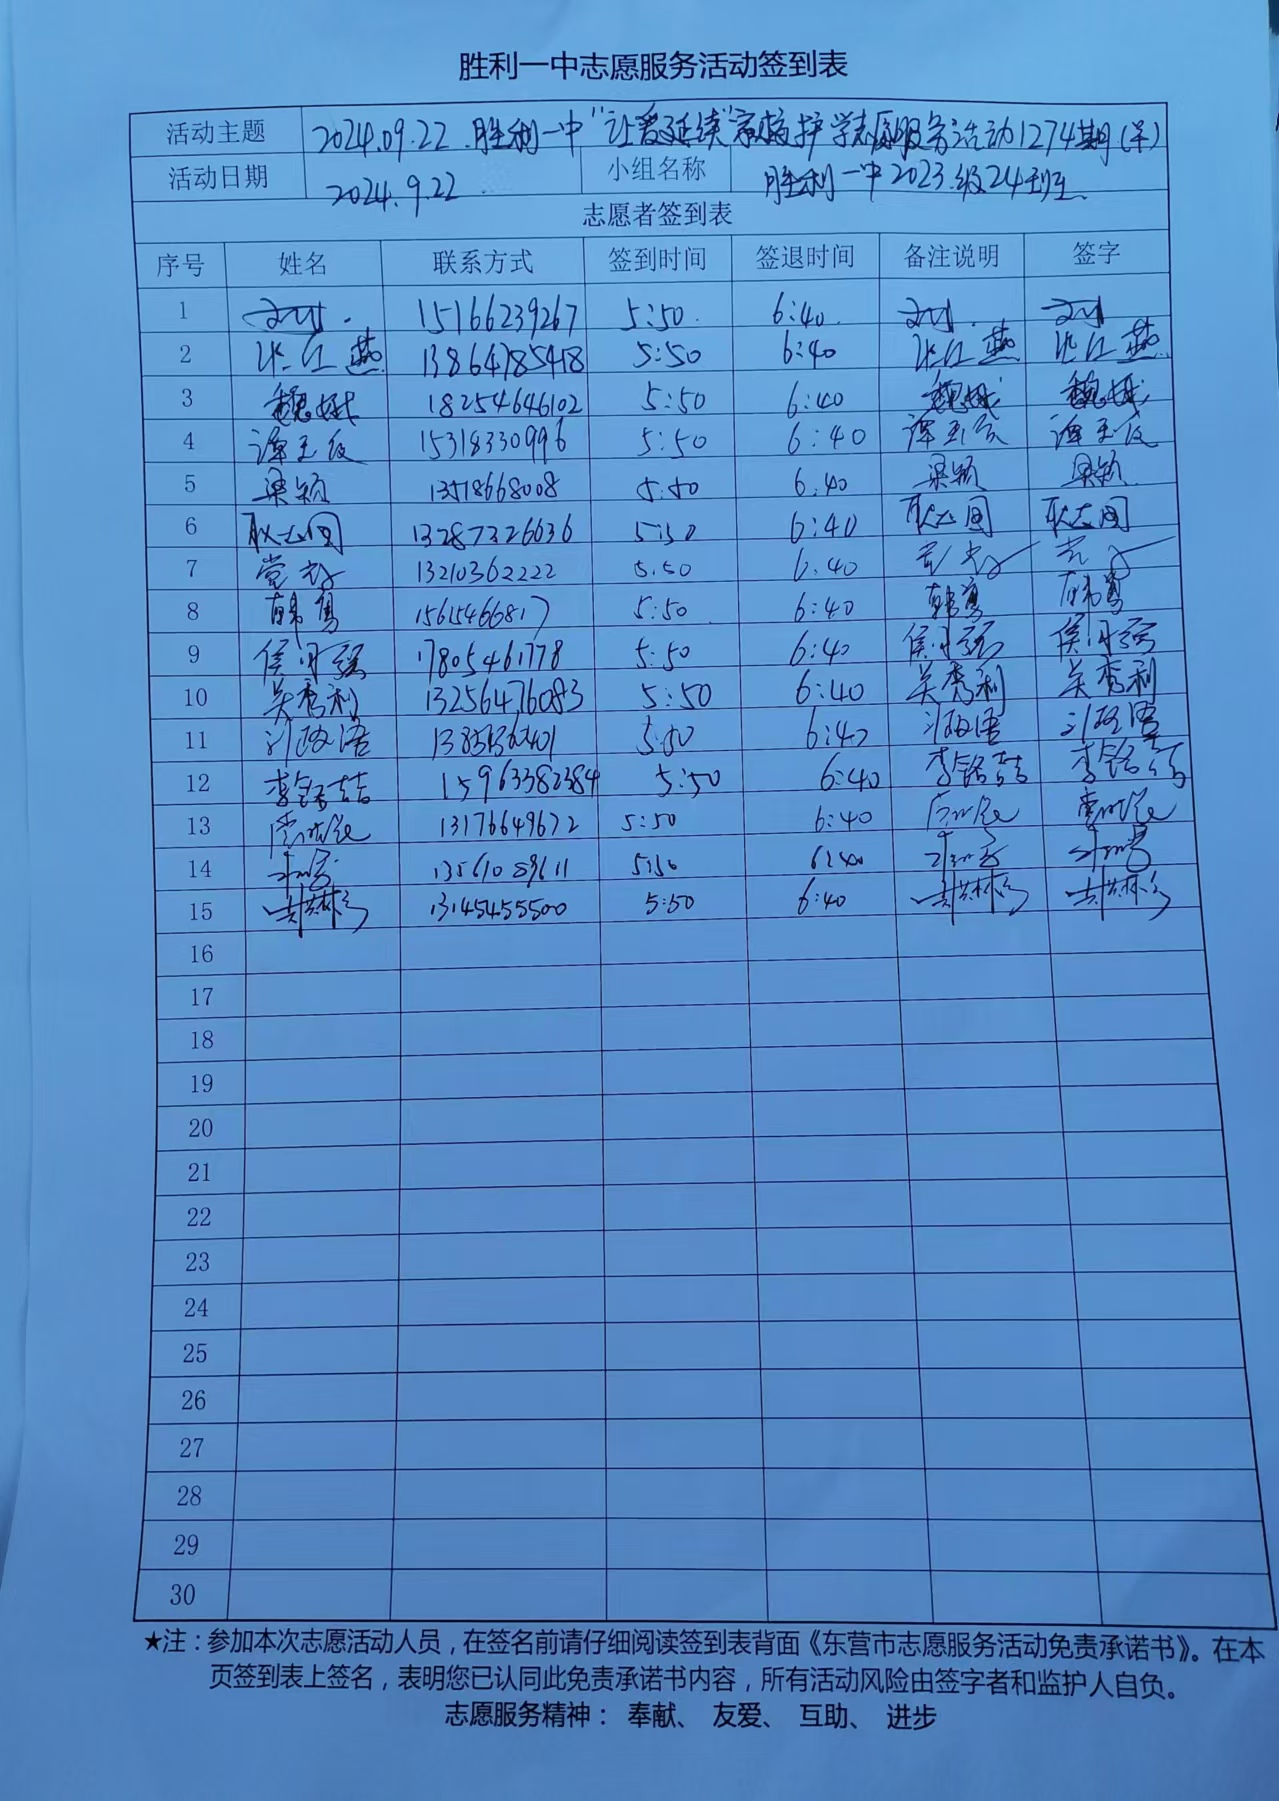 胜利一中志愿服务活动签到表
活动主题 2024.09.22.胜利一中“让爱延续”家校护学志愿服务活动1274期(早)
活动日期 2024.9.22. 小组名称 胜利一中2023级24班
志愿者签到表
序号 姓名 联系方式 签到时间 签退时间 备注说明 签字
1 15166239267 5:50 6:40
2 13864785418 5:50 6:40
3 魏娥 18254646102 5:50 6:40 魏娥 魏娥
4 15318330996 5:50 6:40
5 梁颖 13518668008 5:50 6:40 梁颖 梁颖
6 13287326636 5:50 6:40
7 13210362222 5:50 6:40
8 韩勇 15615466817 5:50 6:40 韩勇 韩勇
9 侯月强 17805461778 5:50 6:40 侯月强 侯月强
10 吴秀利 13256476083 5:50 6:40 吴秀利 吴秀利
11 5:50 6:40
12 李铭喆 15963382384 5:50 6:40 李铭喆 李铭喆
13 13176649672 5:50 6:40
14 13561089611 5:50 6:40
15 13145455500 5:50 6:40
16
17
18
19
20
21
22
23
24
25
26
27
28
29
30
★注：参加本次志愿活动人员，在签名前请仔细阅读签到表背面《东营市志愿服务活动免责承诺书》。在本
页签到表上签名，表明您已认同此免责承诺书内容，所有活动风险由签字者和监护人自负。
志愿服务精神： 奉献、 友爱、 互助、 进步